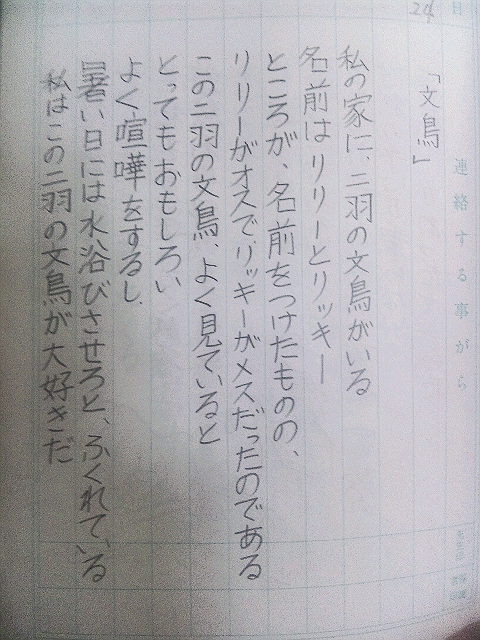 24
日
連絡する事がら
「文鳥」
私の家に、二羽の文鳥がいる
名前はリリーとリッキー
ところが、名前をつけたものの、
リリーがオスで、リッキーがメスだったのである
この二羽の文鳥、よく見ていると
とってもおもしろい
よく喧嘩をするし、
暑い日には水浴びさせろと、ふくれている
私はこの二羽の文鳥が大好きだ